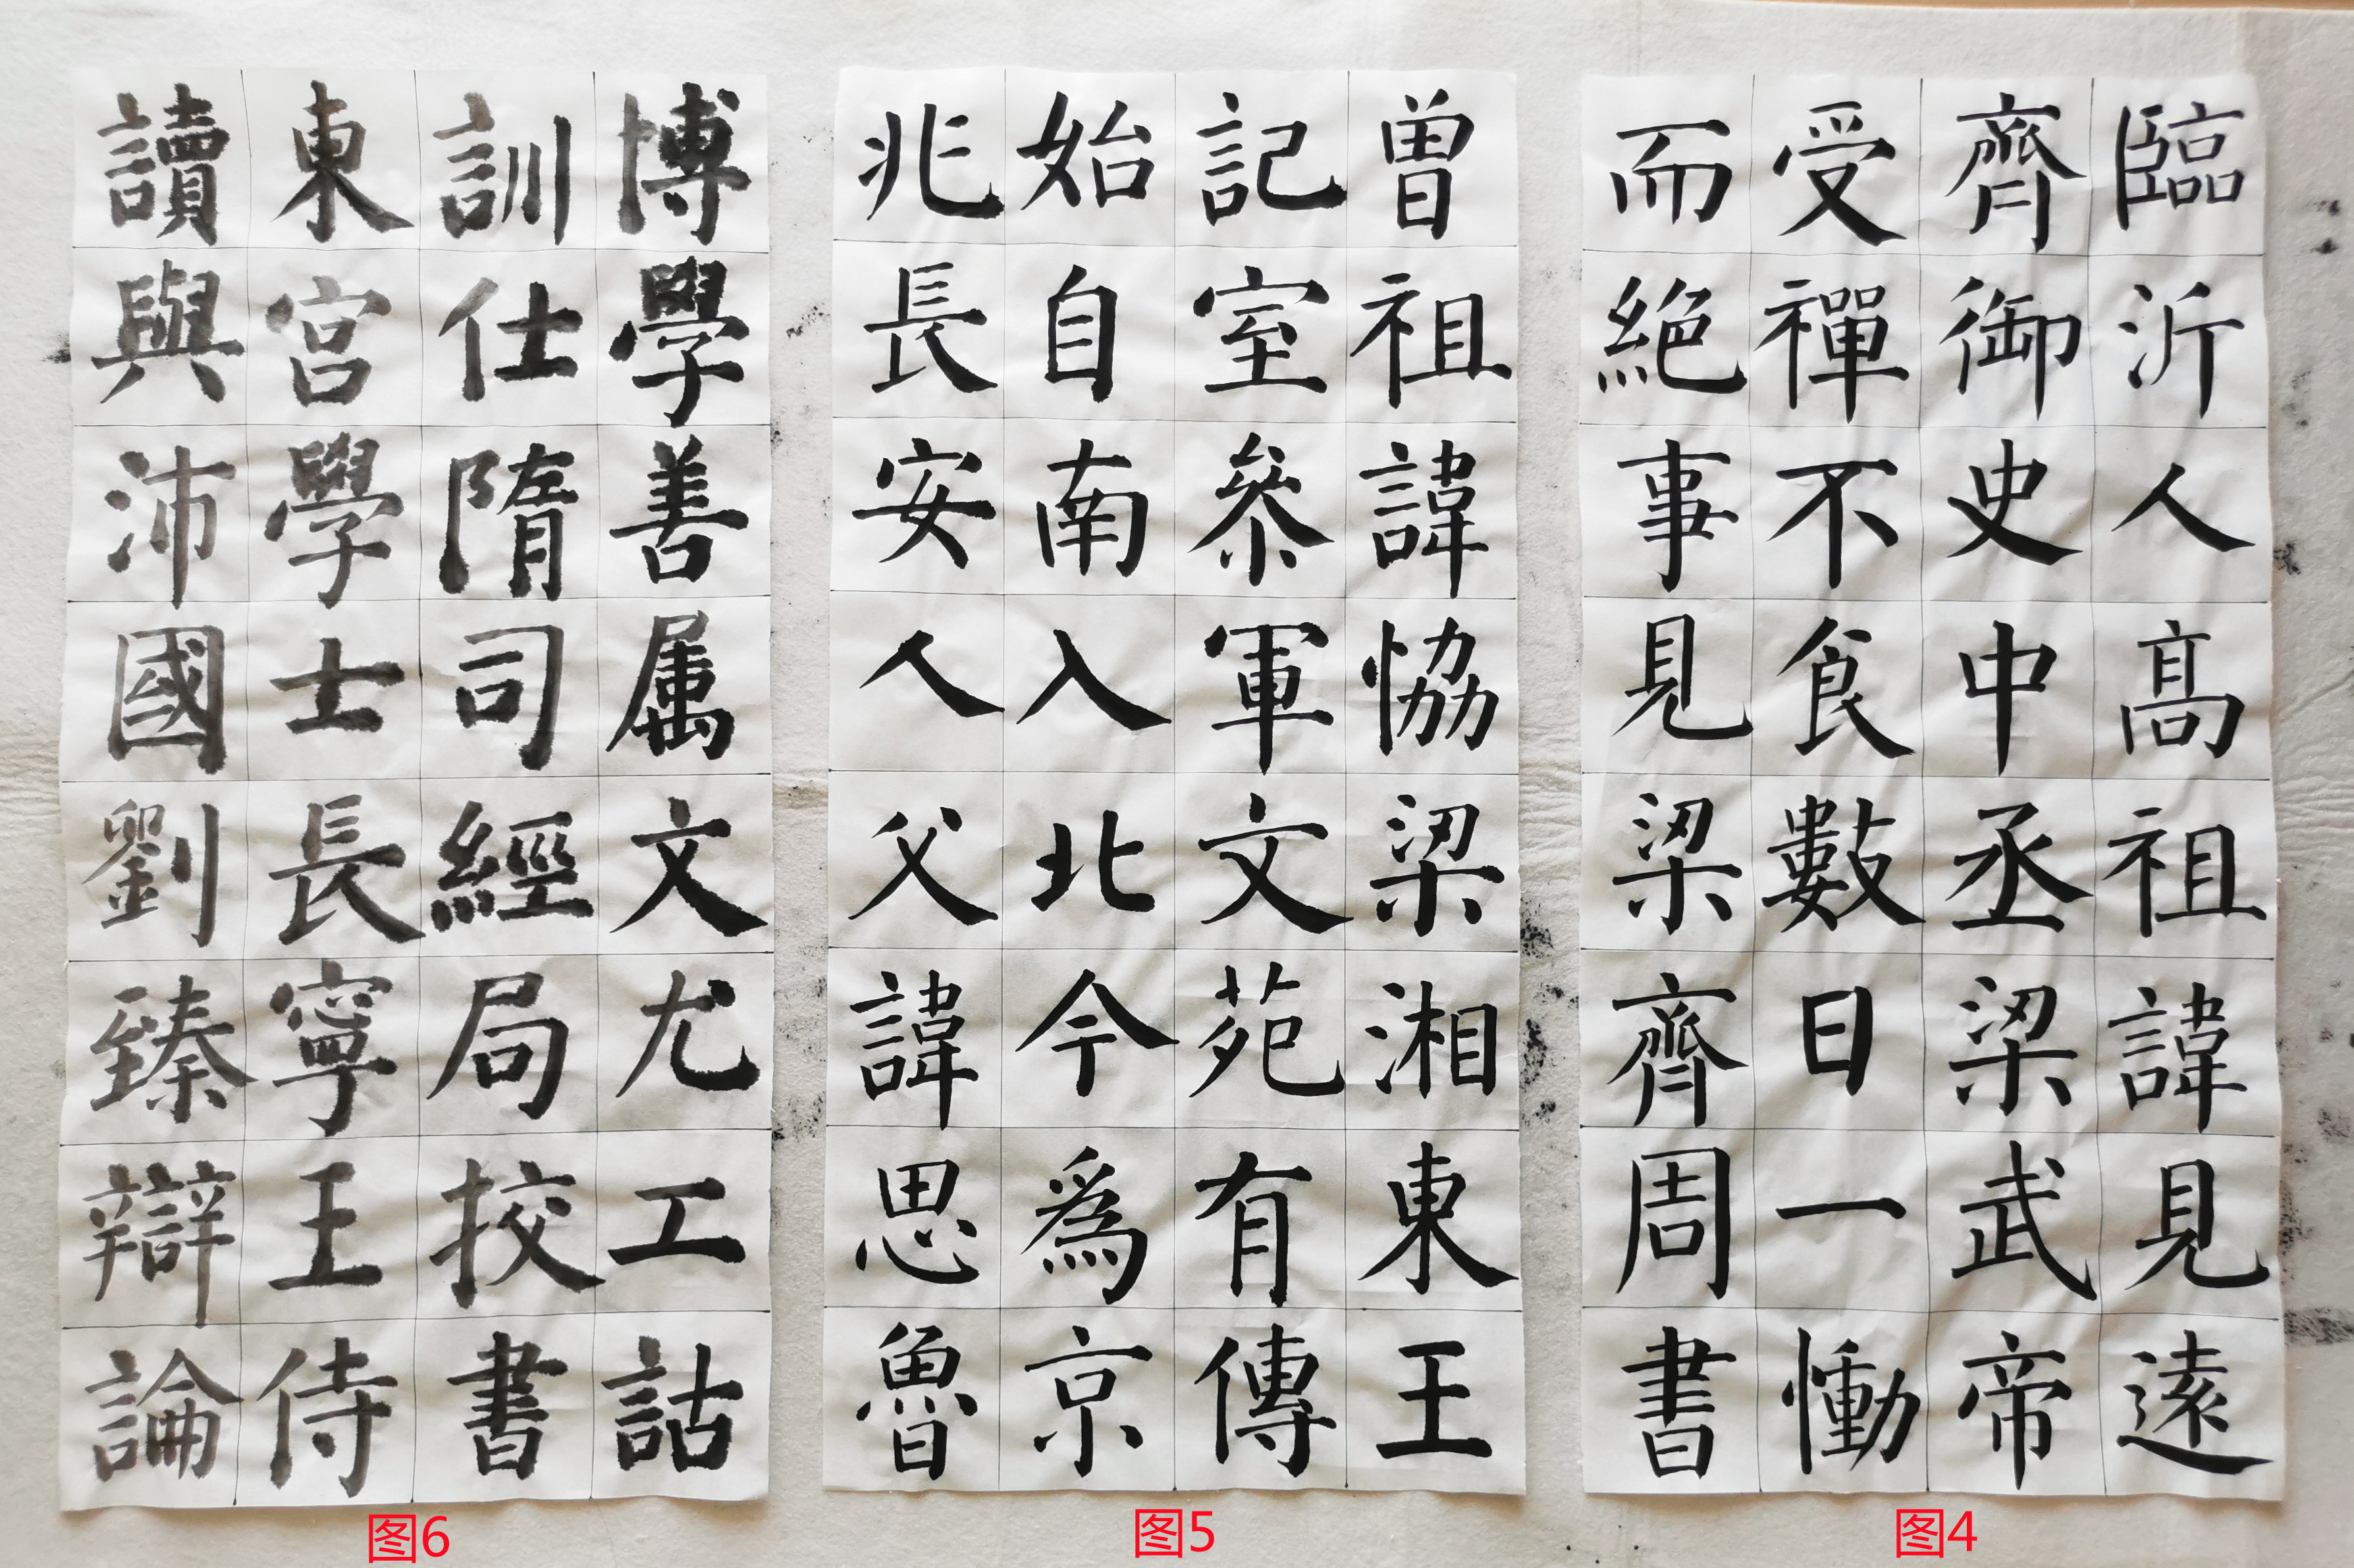 臨沂人高祖諱見遠
齊御史中丞梁武帝
受禪不食數日一慟
而絕事見梁齊周書
图4
曾祖諱恊梁湘東王
記室叅軍文苑有傳
始自南入北今為京
兆長安人父諱思魯
图5
博學善属文尤工詁
訓仕隋司經局挍書
東宮學士長寧王侍
讀與沛國劉臻辯論
图6